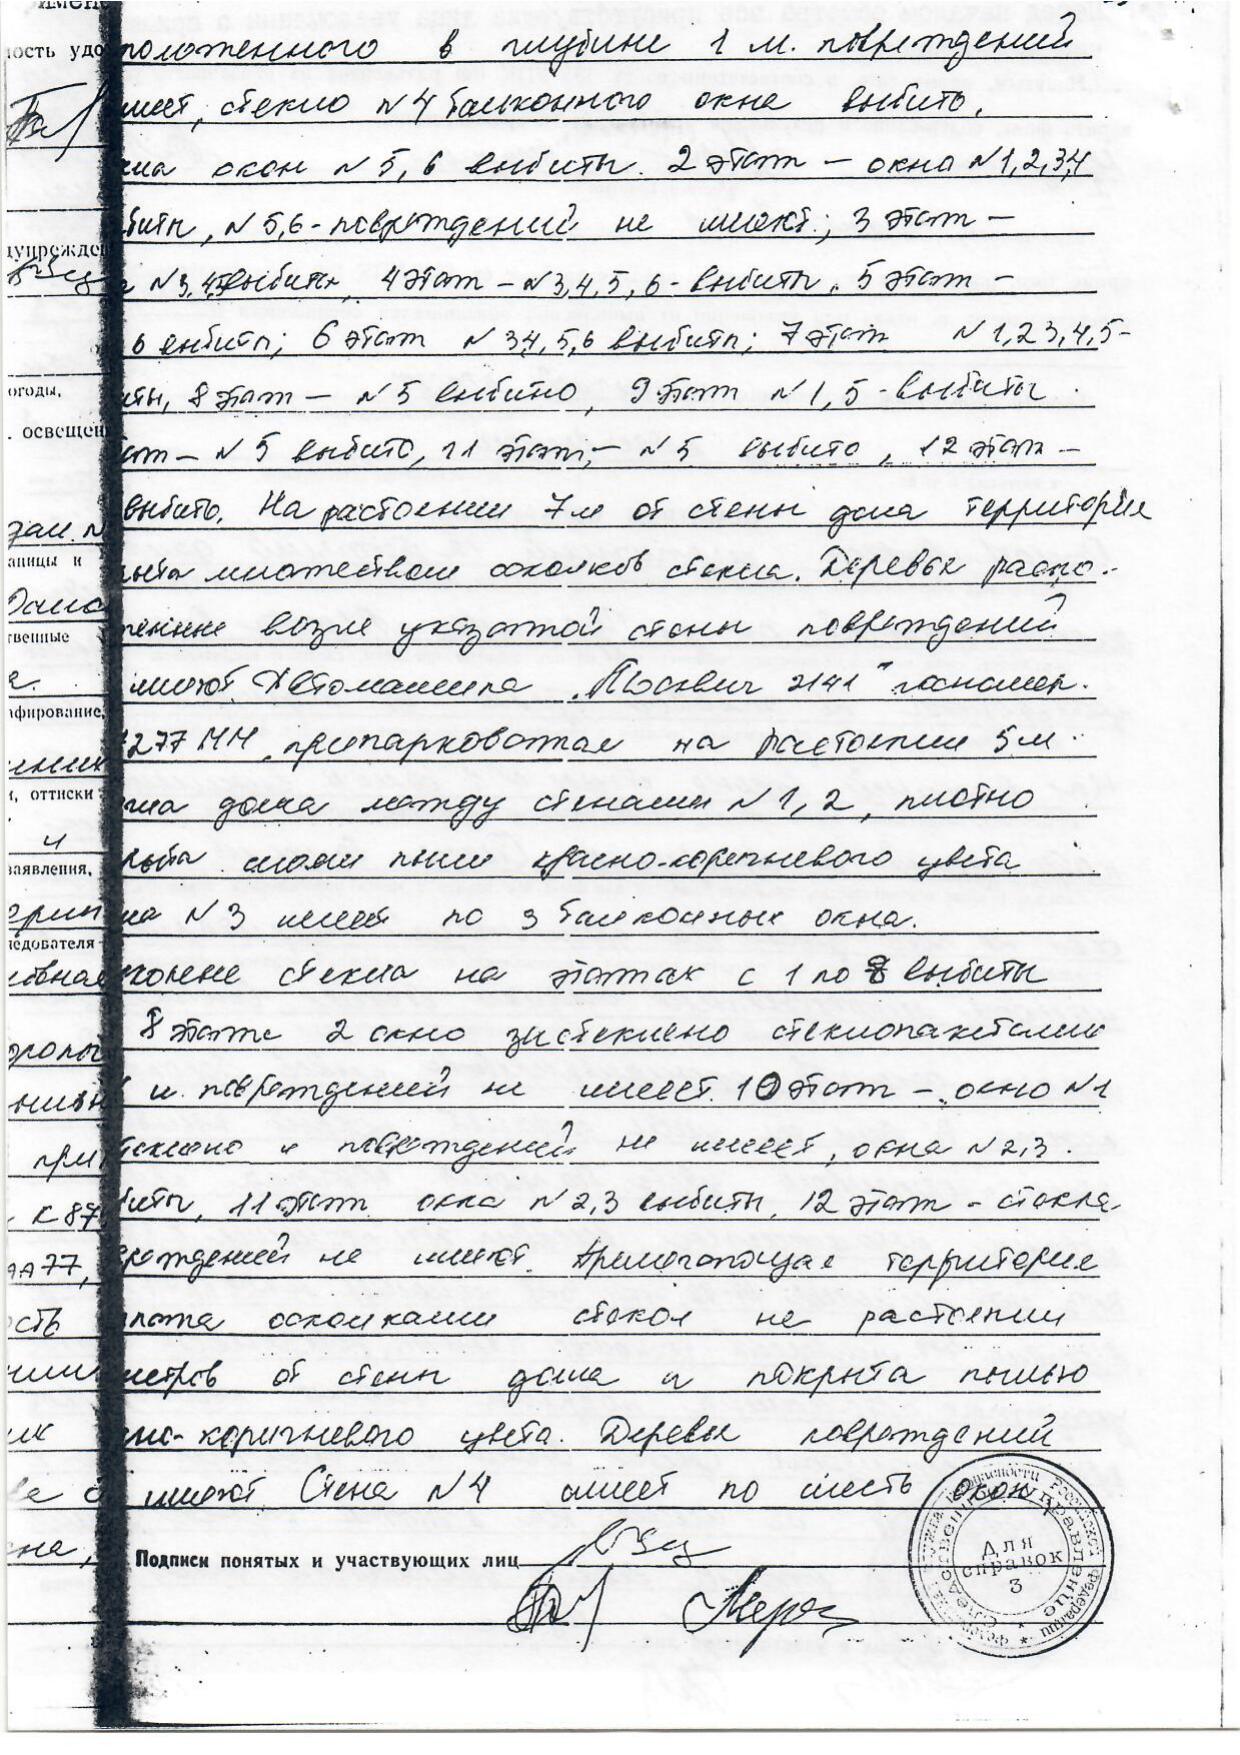 положенного в глубине 1 м. повреждений
имеет, стекло N 4 балконного окна выбито.
на окон N 5, 6 выбиты. 2 этаж – окна N 1,2,3,4
биты, N 5,6 - повреждений не имеют; 3 этаж –
N 3,4,5 выбиты, 4 этаж – N 3,4,5,6 - выбиты, 5 этаж –
6 выбиты; 6 этаж N 3 4, 5,6 выбиты; 7 этаж N 1,2 3,4,5-
иты, 8 этаж – N 5 выбито, 9 этаж N 1, 5 - выбиты
аж – N 5 выбито, 11 этаж – N 5 выбито, 12 этаж –
выбито. На растоянии 7 м от стены дома территория
рыта множеством осколков стекла. Деревья распо-
женные возле указанной стены повреждений
имеют. Автомашина "Москвич 2141" госномер
277 ММ, припаркованная на растоянии 5 м
ма дома между стенами N 1, 2, плотно
рыта слоем пыли красно-коричневого цвета
на N 3 имеет по 3 балконных окна.
стекла на этажах с 1 по 8 выбиты
8 этаже 2 окно застеклено стеклопакетами
и повреждений не имеет. 10 этаж – окно N 1
теклено и повреждений не имеет, окна N 2,3
биты, 11 этаж окна N 2,3 выбиты, 12 этаж - стекла
реждений не имеют. Прилегающая территория
осколками стекол на растоянии
метров от стены дома и покрыта пылью
сно-коричневого цвета. Деревья повреждений
имеют. Стена N 4 имеет по шесть окон
Подписи понятых и участвующих лиц
ность удо
дупрежден
огоды,
. освещен
аницы и
твенные
афирование,
и, оттиски
заявления,
ледователя
Федеральная служба безопасности Российской Федерации
Следственное управление
Для
справок
3